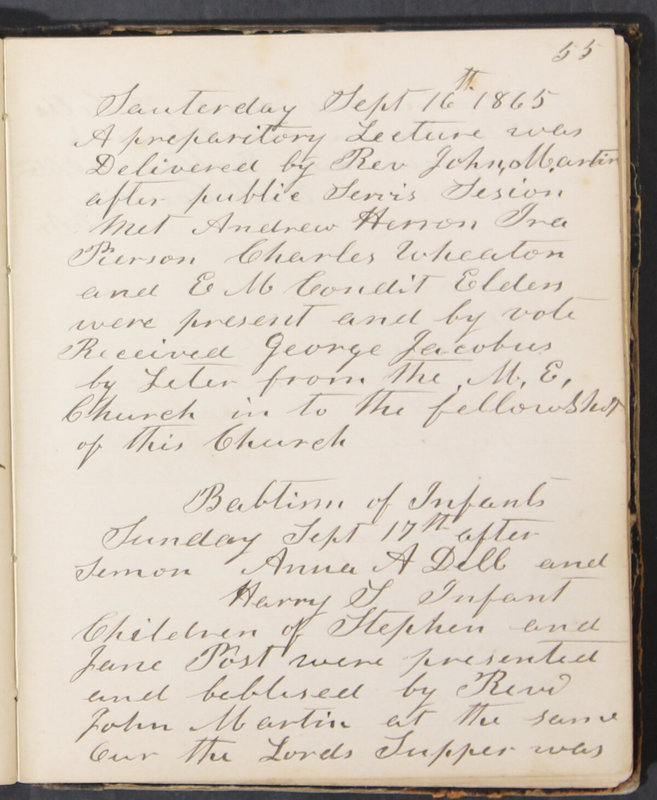 55
Sauterday Sept 16th 1865
A preparitory Lecture was
Delivered by Rev John, Martin
after public Servis Sesion
Met Andrew Herron Ira
Pierson Charles Wheaton
and E M Condit Elders
were present and by vote
Received George Jacobus
by Leter from the M, E,
Church in to the fellowship
of this Church
Babtism of Infants
Sunday Sept 17th after
Sermon Anna A Dell and
Harry S Infant
Children of Stephen and
Jane Post were presented
and by Revd
John Martin at the same
the Lords Supper was